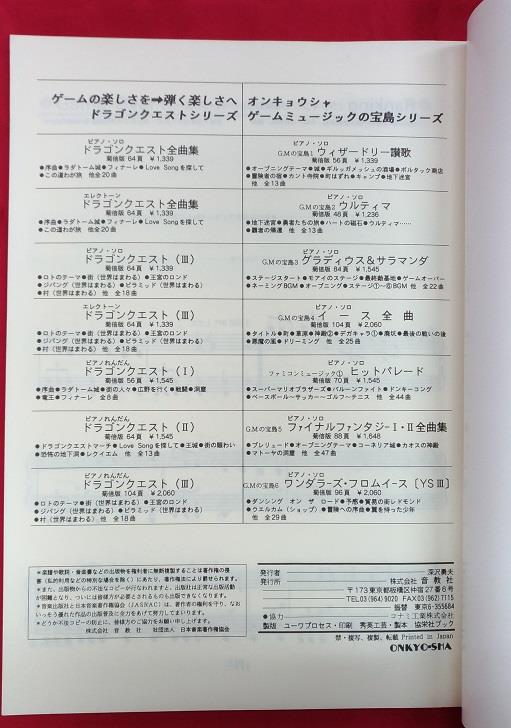 ゲームの楽しさを➡弾く楽しさへ
ドラゴンクエストシリーズ
ピアノ・ソロ
ドラゴンクエスト全曲集
菊倍版 64頁 ¥1,339
●序曲●ラダトーム城●フィナーレ●Love Songを探して
●この道わが旅 他全20曲
エレクトーン
ドラゴンクエスト全曲集
菊倍版 64頁 ¥1,339
●序曲●ラダトーム城●フィナーレ●Love Songを探して
●この道わが旅 他全20曲
ピアノ・ソロ
ドラゴンクエスト(Ⅲ)
菊倍版 64頁 ¥1,339
●ロトのテーマ●街(世界はまわる)●王宮のロンド
●ジパング(世界はまわる)●ピラミッド(世界はまわる)
●村(世界はまわる) 他 全18曲
エレクトーン
ドラゴンクエスト(Ⅲ)
菊倍版 64頁 ¥1,339
●ロトのテーマ●街(世界はまわる)●王宮のロンド
●ジパング(世界はまわる)●ピラミッド(世界はまわる)
●村(世界はまわる) 他 全18曲
ピアノれんだん
ドラゴンクエスト(Ⅰ)
菊倍版 56頁 ¥1,545
●序曲●ラダトーム城●街の人々●広野を行く●戦闘●洞窟
●竜王●フィナーレ 全8曲
ピアノれんだん
ドラゴンクエスト(Ⅱ)
菊倍版 54頁 ¥1,545
●ドラゴンクエストマーチ●Love Songを探して●王城●街の賑わい
●恐怖の地下洞●レクイエム 他 全13曲
ピアノれんだん
ドラゴンクエスト(Ⅲ)
菊倍版 104頁 ¥2,060
●ロトのテーマ●街(世界はまわる)●王宮のロンド
●ジパング(世界はまわる)●ピラミッド(世界はまわる)
●村(世界はまわる) 他 全18曲
オンキョウシャ
ゲームミュージックの宝島シリーズ
ピアノ・ソロ
G.Mの宝島1 ウィザードリー讃歌
菊倍版 56頁 ¥1,339
●オープニングテーマ●城●ギルガメッシュの酒場●ボルタック商店
●冒険者の宿●カント寺院●町はずれ●キャンプ●地下迷宮
他 全13曲
ピアノ・ソロ
G.Mの宝島2 ウルティマ
菊倍版 48頁 ¥1,236
●地下迷宮●勇者たちの旅●ハートの磁石●ウルティマ……
●覇者の帰還 他 全13曲
ピアノ・ソロ
G.Mの宝島3 グラディウス&サラマンダ
菊倍版 84頁 ¥1,545
●ステージスタート●モアイのステージ●最終敵基地●ゲームオーバー
●ネーミングBGM●オープニング●ステージ①〜⑥BGM 他 全22曲
ピアノ・ソロ
G.Mの宝島4 イース全曲
菊倍版 104頁 ¥2,060
●タイトル●町●草原●神殿②●デガキャラ①●廃坑●最後の戦いの後
●悪魔の風●ドリーミング 他 全25曲
ピアノ・ソロ
ファミコンミュージック① ヒットパレード
菊倍版 70頁 ¥1,545
●スーパーマリオブラザーズ●バルーンファイト●ドンキーコング
●ベースボール~サッカー~ゴルフ~テニス 他 全44曲
ピアノ・ソロ
G.Mの宝島5 ファイナルファンタジーⅠ・Ⅱ全曲集
菊倍版 88頁 ¥1,648
●プレリュード●オープニングテーマ●コーネリア城●カオスの神殿
●マトーヤの洞窟 他 全47曲
ピアノ・ソロ
G.Mの宝島6 ワンダラーズ・フロムイース〔YSⅢ〕
菊倍版 96頁 ¥2,060
●ダンシング オン ザ ロード●予感●貿易の街レドモンド
●ウエルカム(ショップ)●冒険への序曲●翼を持った少年
他 全29曲
*楽譜や歌詞・音楽書などの出版物を権利者に無断複製することは著作権の侵
害(私的利用などの特別な場合を除く)にあたり、著作権法により罰せられます。
*また、出版物からの不法なコピーが行なわれますと、出版社は正常な出版活動
が困難となり、ついには皆様方が必要とされるものも出版できなくなります。
*音楽出版社と日本音楽著作権協会(JASRAC)は、著作者の権利を守り、なお
いっそう優れた作品の出版普及に全力をあげて努力してまいります。
*どうか不法コピーの防止に、皆様方のご協力をお願い申し上げます。
株式会社 音教社 社団法人 日本音楽著作権協会
発行者 深沢勇夫
発行所 株式会社 音教社
〒173東京都板橋区仲宿27番6号
TEL.03(964)9020 FAX03(962)7115
振替 東京6-355684
●協力 コナミ工業株式会社
製版 ユーワプロセス・印刷 秀英工芸・製本 協栄社ブック
禁・複写、複製、転載 Printed in Japan
ONKYO-SHA